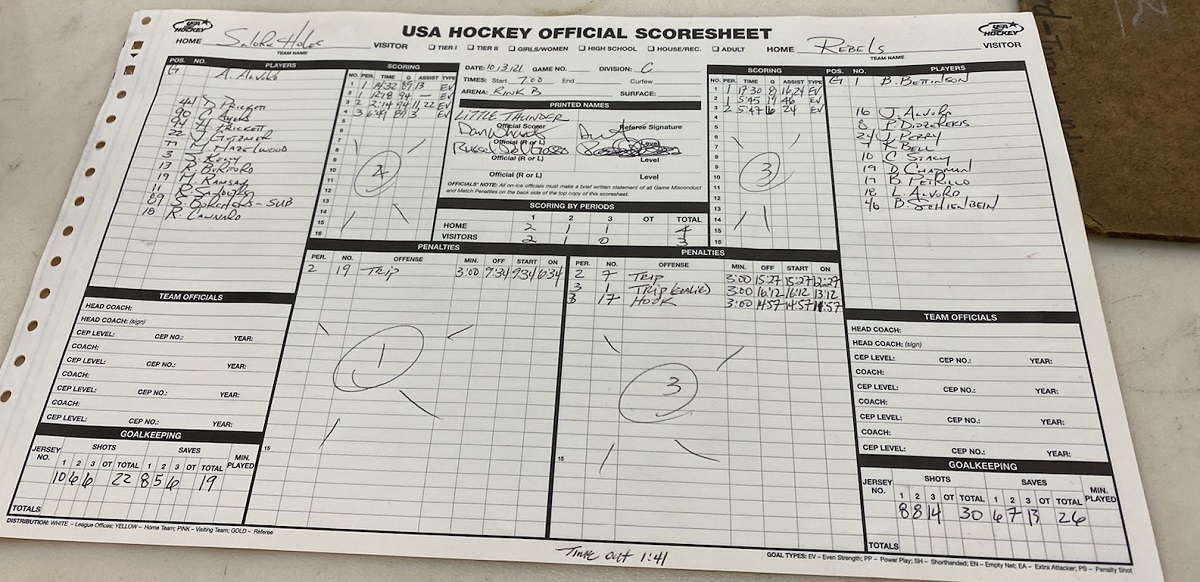 USA HOCKEY OFFICIAL SCORESHEET
USA HOCKEY
HOME
TEAM NAME
VISITOR
☐ TIER I ☐ TIER II ☐ GIRLS/WOMEN ☐ HIGH SCHOOL ☐ HOUSE/REC. ☐ ADULT
HOME REBELS VISITOR
TEAM NAME
USA HOCKEY
POS. NO. PLAYERS
G
A. Alvoro
44 D. PRICKETT
90
94 PRICKETT
22
77 M. HAZELWOOD
3
17 R. BURFORD
19 M. RAMSAY
11
89 S. BORCHERS - SUB
18 R. CANNARO
SCORING
NO. PER. TIME G ASSIST TYPE
1 1 14:32 89 13 EV
2 1 12:18 94 — EV
3 2 2:14 94 11, 22 EV
4 3 6:49 89 3 EV
5
6
7
8
9
10
11
12
13
14
15
16
4
DATE: 10/13/21 GAME NO. DIVISION: C
TIMES: Start 7:00 End Curfew
ARENA: RINK B SURFACE:
PRINTED NAMES
LITTLE THUNDER
Official Scorer Referee Signature
Official (R or L) Level
Official (R or L) Level
Official (R or L) Level
OFFICIALS' NOTE: All on-ice officials must make a brief written statement of all Game Misconduct
and Match Penalties on the back side of the top copy of this scoresheet.
SCORING BY PERIODS
1 2 3 OT TOTAL
HOME 2 1 1 4
VISITORS 2 1 0 3
SCORING
NO. PER. TIME G ASSIST TYPE
1 1 17:30 8 16,24 EV
2 1 5:45 19 46 EV
3 2 5:47 16 24 EV
4
5
6
7
8
9
10
11
12
13
14
15
16
3
POS. NO. PLAYERS
G 1 B. BETTINSON
16 J. ALVORO
8 P. DIOZEREKIS
24 J. PERRY
7 K. BELL
10 C. STACY
19 D. CHAPMAN
17 B. PETRILLO
18 L. ALVORO
46 B. SCHIENBEIN
PENALTIES
PER. NO. OFFENSE MIN. OFF START ON
2 19 TRIP 3:00 9:34 9:34 6:34
15
1
PENALTIES
PER. NO. OFFENSE MIN. OFF START ON
2 7 TRIP 3:00 15:27 15:27 12:27
3 1 TRIP (GOALIE) 3:00 16:12 16:12 13:12
3 17 HOOK 3:00 14:57 14:57 11:57
15
3
TEAM OFFICIALS
HEAD COACH:
HEAD COACH: (sign)
CEP LEVEL: CEP NO.: YEAR:
COACH:
CEP LEVEL: CEP NO.: YEAR:
COACH:
CEP LEVEL: CEP NO.: YEAR:
COACH:
CEP LEVEL: CEP NO.: YEAR:
GOALKEEPING
JERSEY NO. SHOTS SAVES MIN. PLAYED
1 2 3 OT TOTAL 1 2 3 OT TOTAL
10 6 6 22 8 5 6 19
TOTALS
TEAM OFFICIALS
HEAD COACH:
HEAD COACH: (sign)
CEP LEVEL: CEP NO.: YEAR:
COACH:
CEP LEVEL: CEP NO.: YEAR:
COACH:
CEP LEVEL: CEP NO.: YEAR:
COACH:
CEP LEVEL: CEP NO.: YEAR:
GOALKEEPING
JERSEY NO. SHOTS SAVES MIN. PLAYED
1 2 3 OT TOTAL 1 2 3 OT TOTAL
8 8 14 30 6 7 13 26
TOTALS
DISTRIBUTION: WHITE – League Offices; YELLOW – Home Team; PINK – Visiting Team; GOLD – Referee
Time out 1:41
GOAL TYPES: EV – Even Strength; PP – Power Play; SH – Shorthanded; EN – Empty Net; EA – Extra Attacker; PS – Penalty Shot